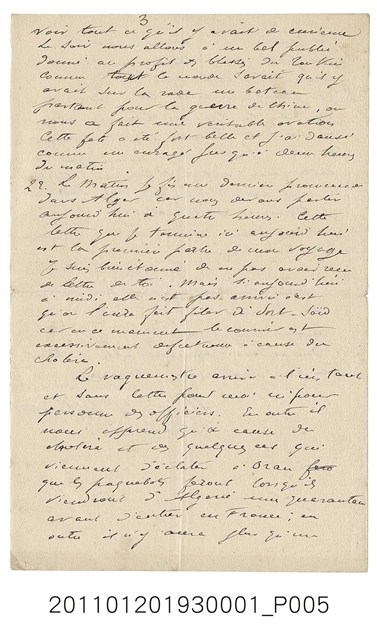 3
voir tout ce qu'il y avait de curieux
Le soir nous allons à un bal public
donné au profit des blessés du Tonkin
comme tout le monde savait qu'il y
avait sur la rade un bateau
partant pour la guerre de Chine, on
nous a fait une véritable ovation
Cette fête a été fort belle et j'ai dansé
comme un enragé jusqu'à deux heures
du matin.
22. Le Matin je fis une dernière promenade
dans Alger car nous devons partir
aujourd'hui à quatre heures. Cette
lettre que je termine ici aujourd'hui
est la première partie de mon voyage
Je suis bien étonné de ne pas avoir reçu
de lettre de toi. Mais si aujourd'hui
à midi elle n'est pas arrivée c'est
qu'on l'aura fait filer à Port-Saïd
car en ce moment le courrier est
excessivement défectueux à cause du
choléra.
Le vaguemestre arrive à l'instant
et sans lettre pour moi ni pour
personne des officiers. En outre il
nous apprend qu'à cause du
choléra et des quelques cas qui
viennent d'éclater à Oran
que les paquebots feront lorsqu'ils
viendront d'Algérie une quarantaine
avant d'entrer en France; en
outre il n'y aura plus qu'un
201101201930001_P005